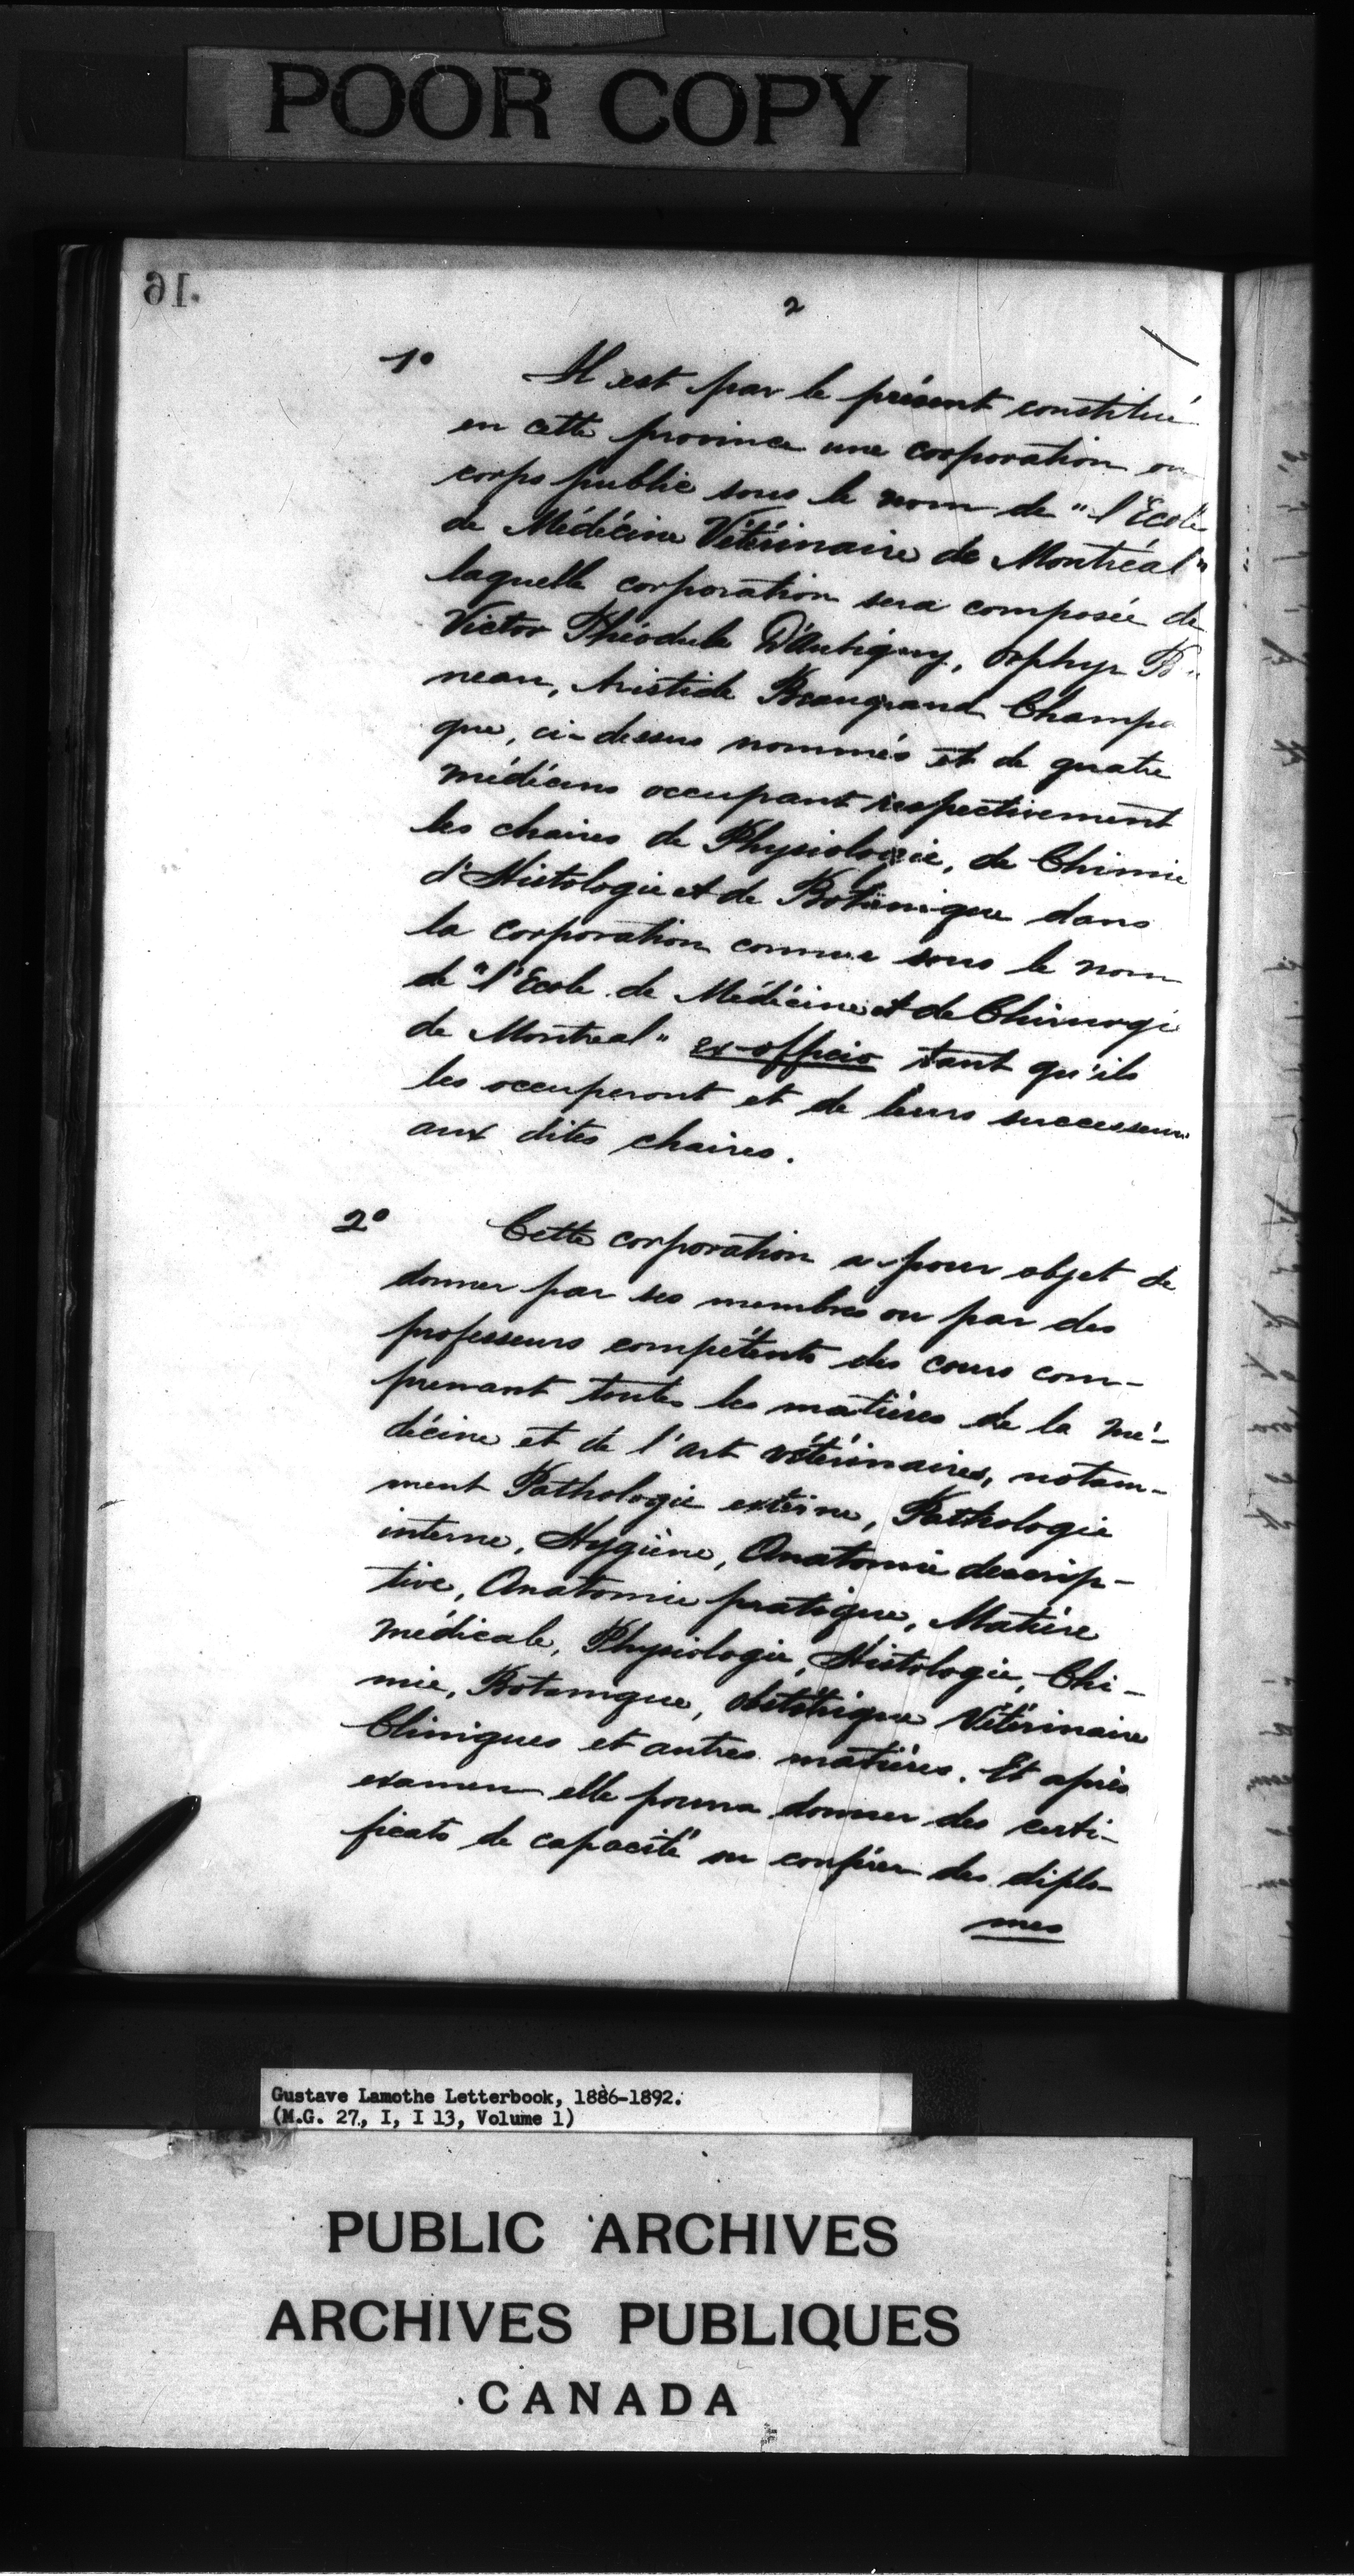 POOR COPY
16
2
1º Il est par le présent constitué
en cette province une corporation ou
corps public sous le nom de "l'Ecole
de Médécine Vétérinaire de Montréal"
laquelle corporation sera composée de
Victor Théodule D'Aubigny, Orphyr B
neau, Aristide Beaugrand Champa
gne, ci-dessus nommés et de quatre
médécins occupant respectivement
les chaires de Physiologie, de Chimie
d'Histologie et de Botanique dans
la corporation connue sous le nom
de "l'Ecole de Médécine et de Chirurgi
de Montreal" ex-officio tant qu'ils
les occuperont et de leurs successeurs
aux dites chaires.
2º Cette corporation a pour objet de
donner par ses membres ou par des
professeurs compétents des cours com-
prenant toutes les matières de la mé-
décine et de l'art vétérinaires, notam-
ment Pathologie externe, Pathologie
interne, Hygiène, Anatomie descrip-
tive, Anatomie pratique, Matière
médicale, Physiologie, Histologie, Chi-
mie, Botanique, Obstétrique Vétérinaire
Cliniques et autres matières. Et après
examen elle pourra donner des certi-
ficats de capacité ou conférer des diplo-
mes
Gustave Lamothe Letterbook, 1886-1892.
(M.G. 27, I, I 13, Volume 1)
PUBLIC ARCHIVES
ARCHIVES PUBLIQUES
CANADA